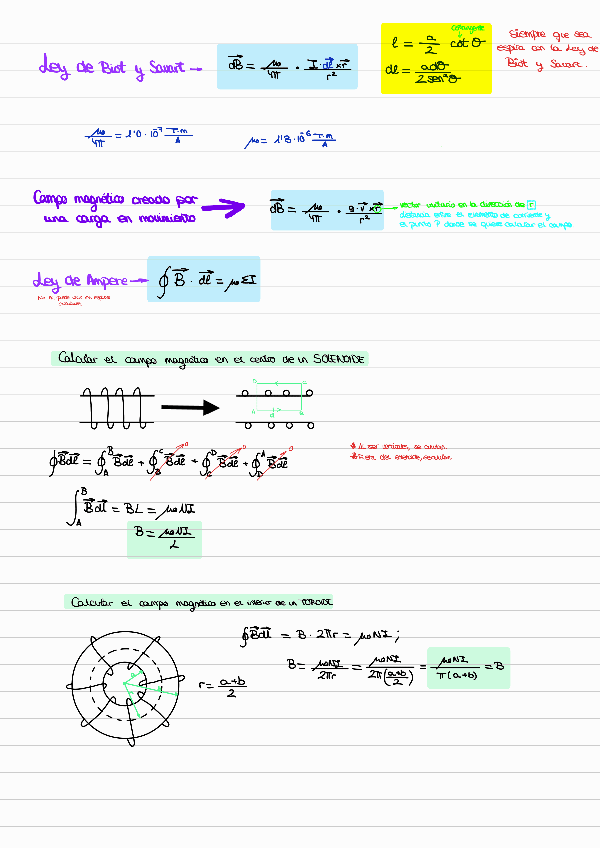 Ley de Biot y Savart → dB = μ₀/4π · I·dl×r/r²
cotangente
l = -a/2 cot θ
dl = adθ/2sen²θ
Siempre que sea
espira con la Ley de
Biot y Savart.
μ₀/4π = 1'0·10⁻⁷ T·m/A
μ₀ = 1'3·10⁻⁶ T·m/A
Campo magnético creado por
una carga en movimiento
dB = μ₀/4π · q·v×r/r²
vector unitario en la dirección de r
distancia entre el elemento de corriente y
el punto P donde se quiere calcular el campo
Ley de Ampere → ∮ B · dl = μ₀ΣI
Calcular el campo magnético en el centro de un SOLENOIDE
D C
A B
∮Bdl = ∫_A^B Bdl + ∫_B^C Bdl + ∫_C^D Bdl + ∫_D^A Bdl
0 0 0
∫_A^B Bdl = BL = μ₀NI
B = μ₀NI/L
Calcular el campo magnético en el interior de un TOROIDE
∮Bdl = B · 2πr = μ₀NI;
r = a+b/2
B = μ₀NI/2πr = μ₀NI/2π(a+b/2) = μ₀NI/π(a+b) = B